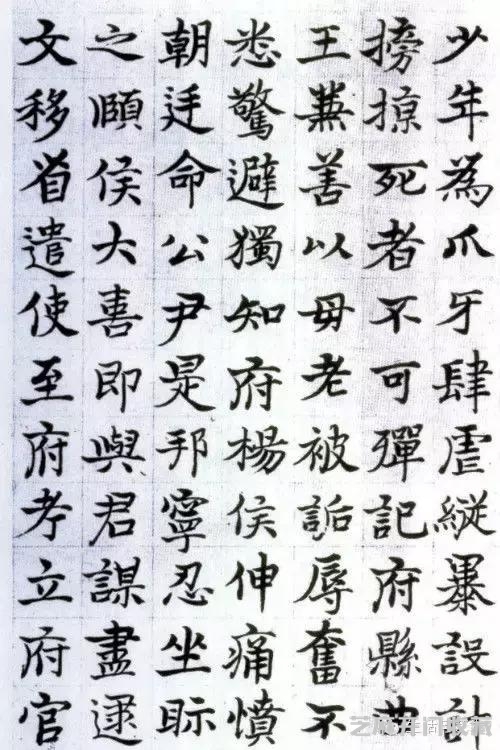 少年為爪牙肆虐縱暴設計
搒掠死者不可殫記府縣
王兼善以母老被詬辱奮不
悉驚避獨知府楊侯伸痛憤
朝廷命公尹是邦寧忍坐眎
之頤侯大喜即與君謀盡逮
文移省遣使至府考立府官